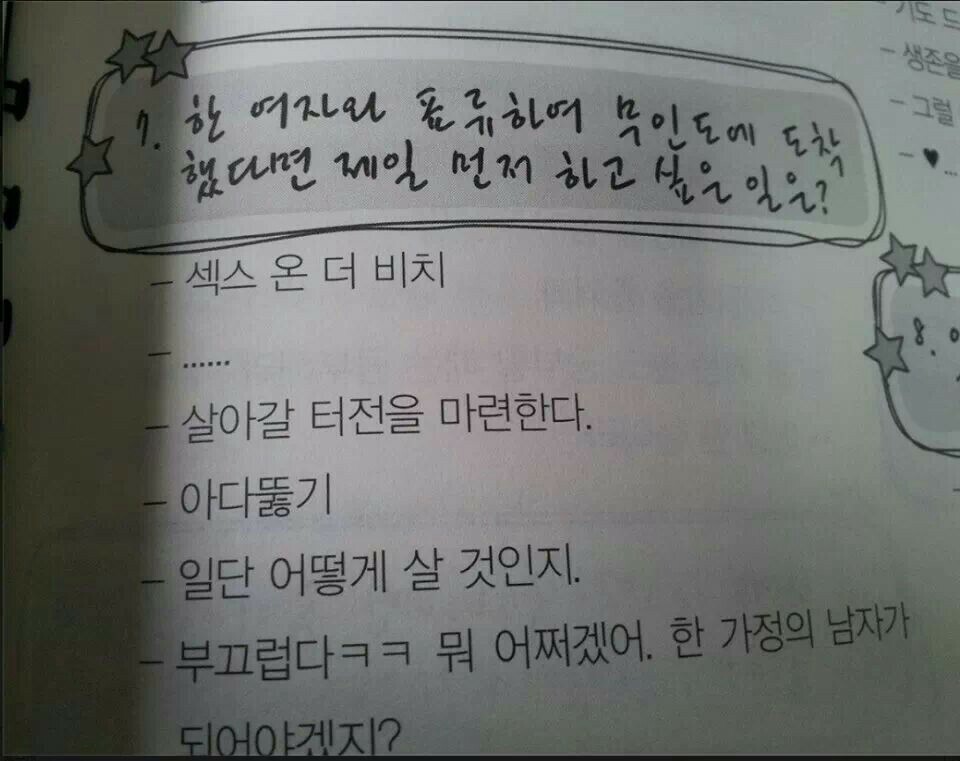 7. 한 여자와 표류하여 무인도에 도착
했다면 제일 먼저 하고 싶은 일은?
– 섹스 온 더 비치
– ......
– 살아갈 터전을 마련한다.
– 아다뚫기
– 일단 어떻게 살 것인지.
– 부끄럽다ㅋㅋ 뭐 어쩌겠어. 한 가정의 남자가
되어야겠지?
– 기도 드
– 생존을
– 그럴
– ♥...
8.